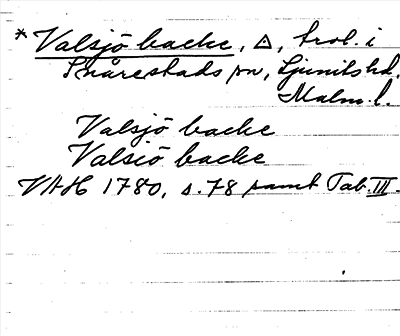 *Valsjö backe, △, trol. i
Snårestads sn, Ljunits hd.
Malm. l.
Valsjö backe
Valsiö backe
VAH 1780, s. 78 samt Tab. III.